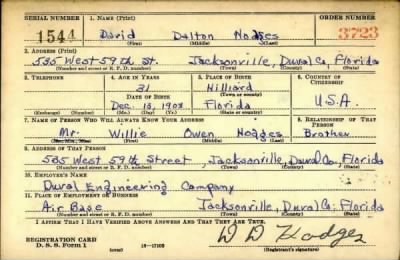 SERIAL NUMBER 1. NAME (Print) ORDER NUMBER
1544 David Dalton Hodges 3723
(First) (Middle) (Last)
2. ADDRESS (Print)
535 West 59th St. Jacksonville, Duval Co, Florida
(Number and street or R. F. D. number) (Town) (County) (State)
3. TELEPHONE 4. AGE IN YEARS 5. PLACE OF BIRTH 6. COUNTRY OF CITIZENSHIP
31 Hilliard
DATE OF BIRTH (Town or county)
Dec. 13, 1908 Florida U.S.A.
(Exchange) (Number) (Mo.) (Day) (Yr.) (State or country)
7. NAME OF PERSON WHO WILL ALWAYS KNOW YOUR ADDRESS 8. RELATIONSHIP OF THAT PERSON
Mr. Willie Owen Hodges Brother
(Mr., Mrs., Miss) (First) (Middle) (Last)
9. ADDRESS OF THAT PERSON
535 West 59th Street, Jacksonville, Duval Co, Florida
(Number and street or R. F. D. number) (Town) (County) (State)
10. EMPLOYER'S NAME
Duval Engineering Company
11. PLACE OF EMPLOYMENT OR BUSINESS
Air Base Jacksonville, Duval Co, Florida
(Number and street or R. F. D. number) (Town) (County) (State)
I AFFIRM THAT I HAVE VERIFIED ABOVE ANSWERS AND THAT THEY ARE TRUE.
REGISTRATION CARD D D Hodges
D. S. S. Form 1 (over) 16-17105 (Registrant's signature)